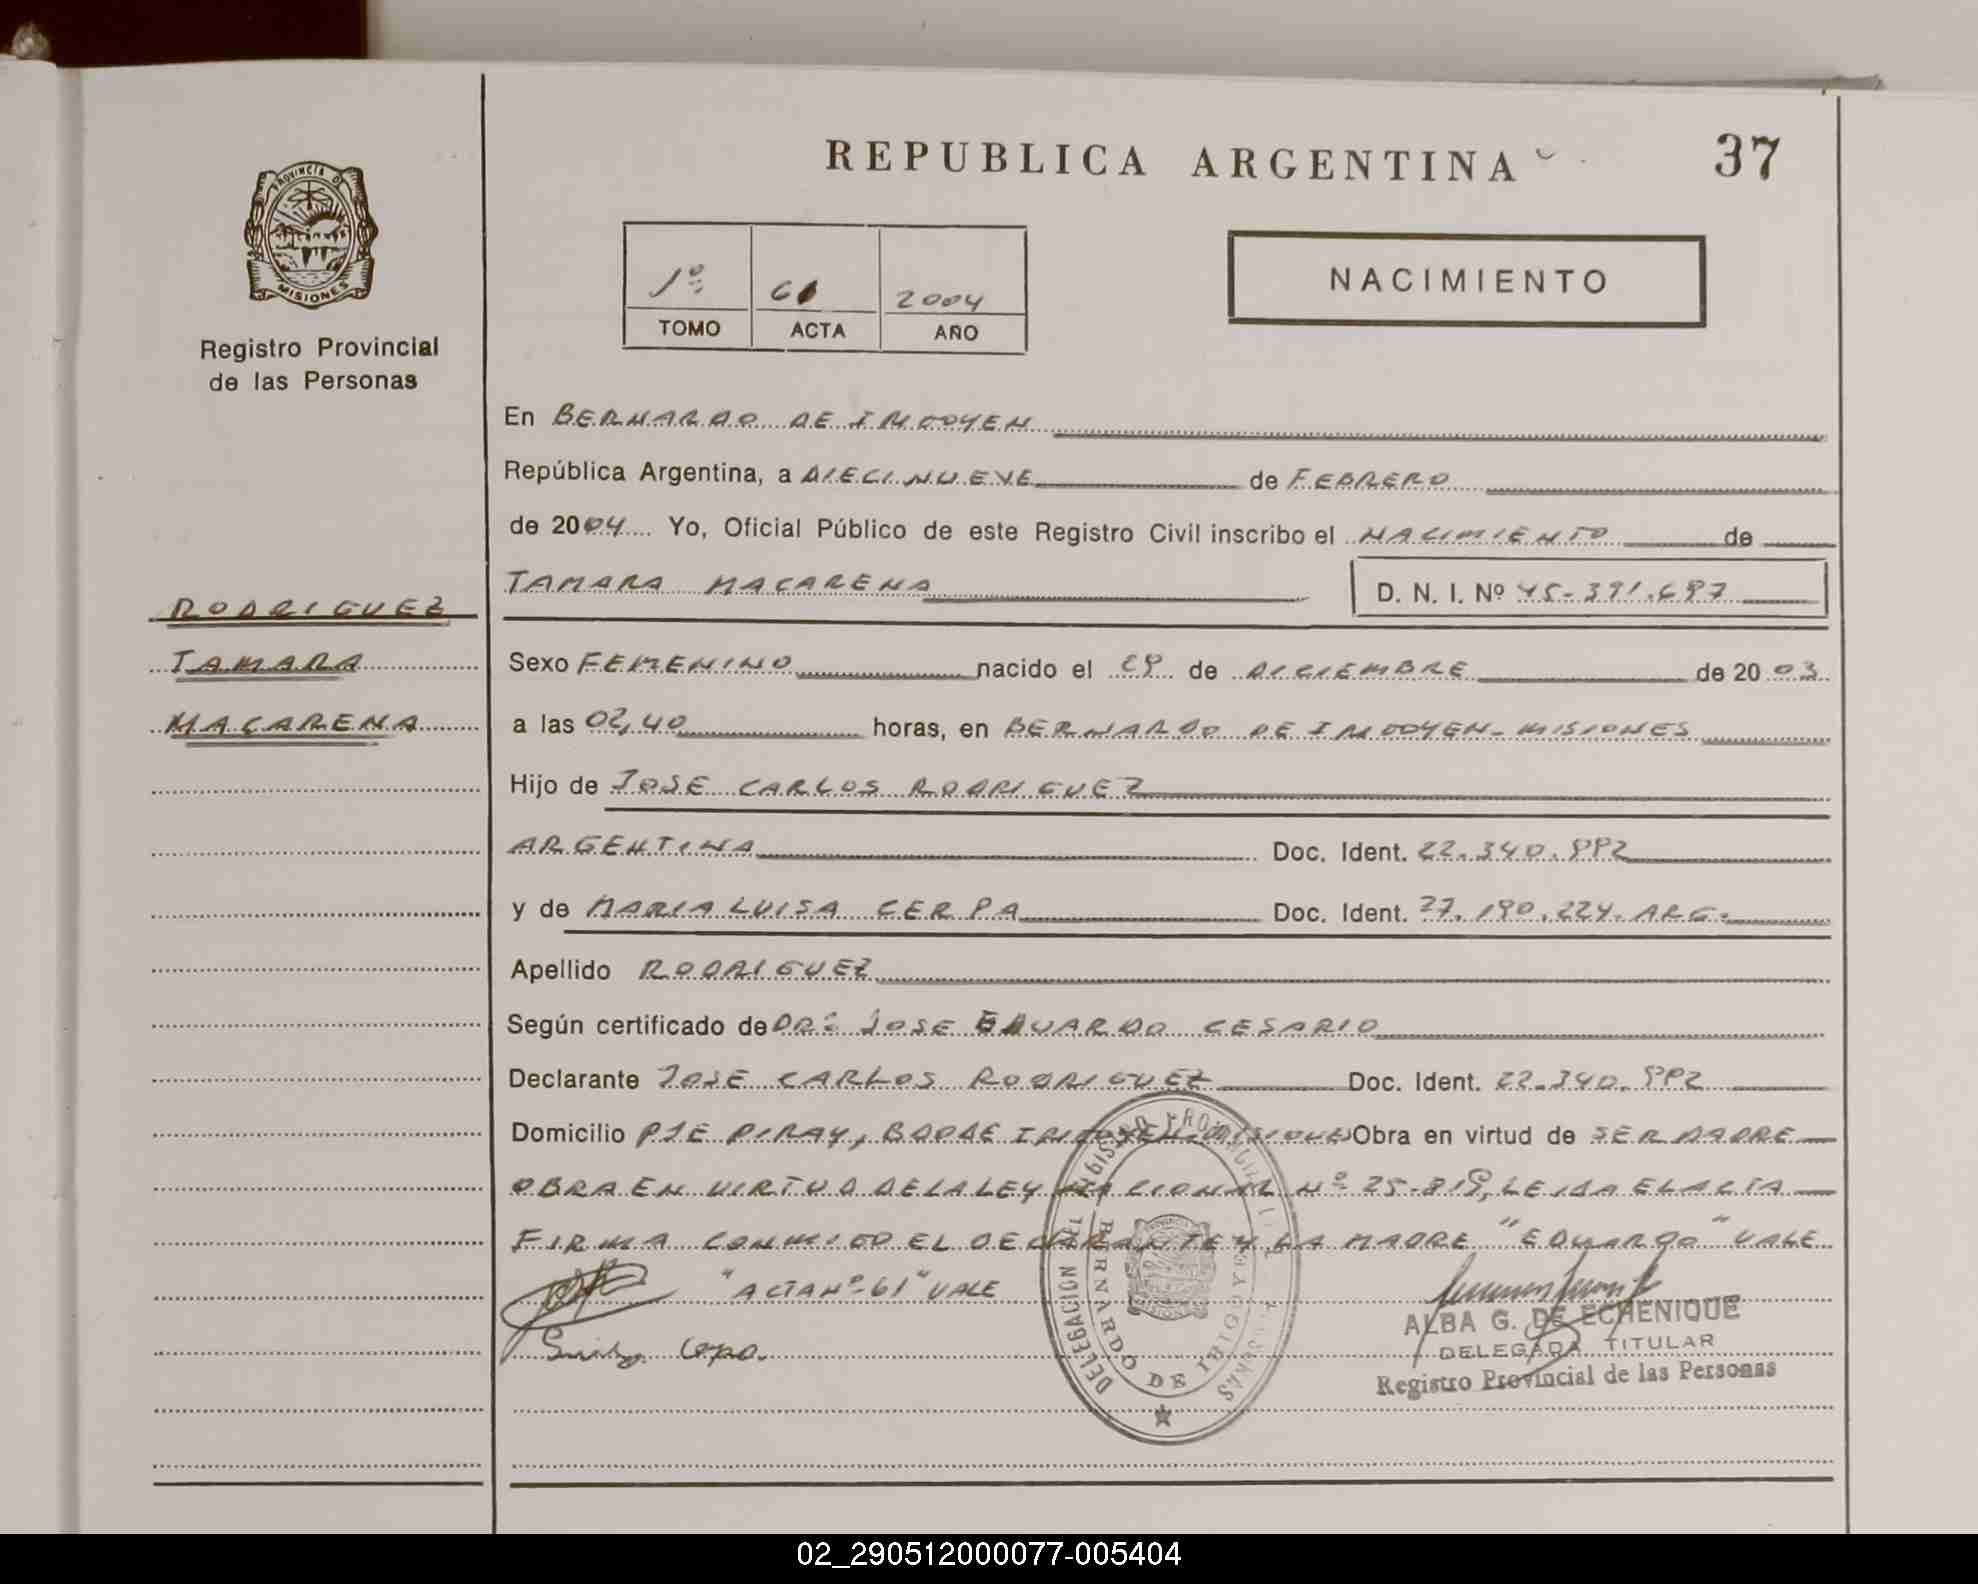 REPUBLICA ARGENTINA
37
PROVINCIA DE
MISIONES
Registro Provincial
de las Personas
1º 61 2004
TOMO ACTA AÑO
NACIMIENTO
En BERNARDO DE IRIGOYEN
República Argentina, a DIECINUEVE de FEBRERO
de 2004 Yo, Oficial Público de este Registro Civil inscribo el NACIMIENTO de
TAMARA MACARENA D. N. I. Nº 45-391.697
RODRIGUEZ
TAMARA
MACARENA
Sexo FEMENINO nacido el 29 de DICIEMBRE de 2003
a las 02,40 horas, en BERNARDO DE IRIGOYEN-MISIONES
Hijo de JOSE CARLOS RODRIGUEZ
ARGENTINA Doc. Ident. 22.340.992
y de MARIA LUISA CERPA Doc. Ident. 27.190.224. ARG.
Apellido RODRIGUEZ
Según certificado de DR: JOSE EDUARDO CESARIO
Declarante JOSE CARLOS RODRIGUEZ Doc. Ident. 22.340.992
Domicilio PJE PIRAY, BDODE IRIGOYEN-MISIONES Obra en virtud de SER PADRE
OBRA EN VIRTUD DE LA LEY NACIONAL Nº 25-819, LEIDA EL ACTA
FIRMA CONMIGO EL DECLARANTE Y LA MADRE "EDUARDO" VALE
"ACTA Nº-61" VALE
DELEGACION DEL REGISTRO PROVINCIAL
BERNARDO DE IRIGOYEN
ALBA G. DE ECHENIQUE
DELEGADA TITULAR
Registro Provincial de las Personas
02_290512000077-005404